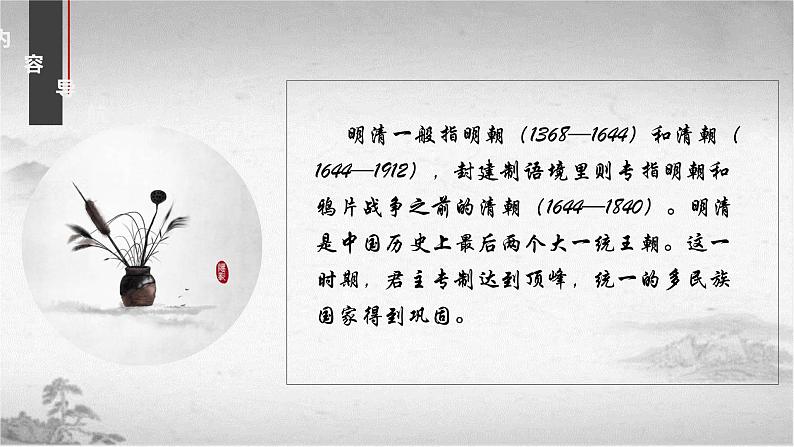 内
容
导
明清一般指明朝（1368—1644）和清朝（
1644—1912），封建制语境里则专指明朝和
鸦片战争之前的清朝（1644—1840）。明清
是中国历史上最后两个大一统王朝。这一
时期，君主专制达到顶峰，统一的多民族
国家得到巩固。